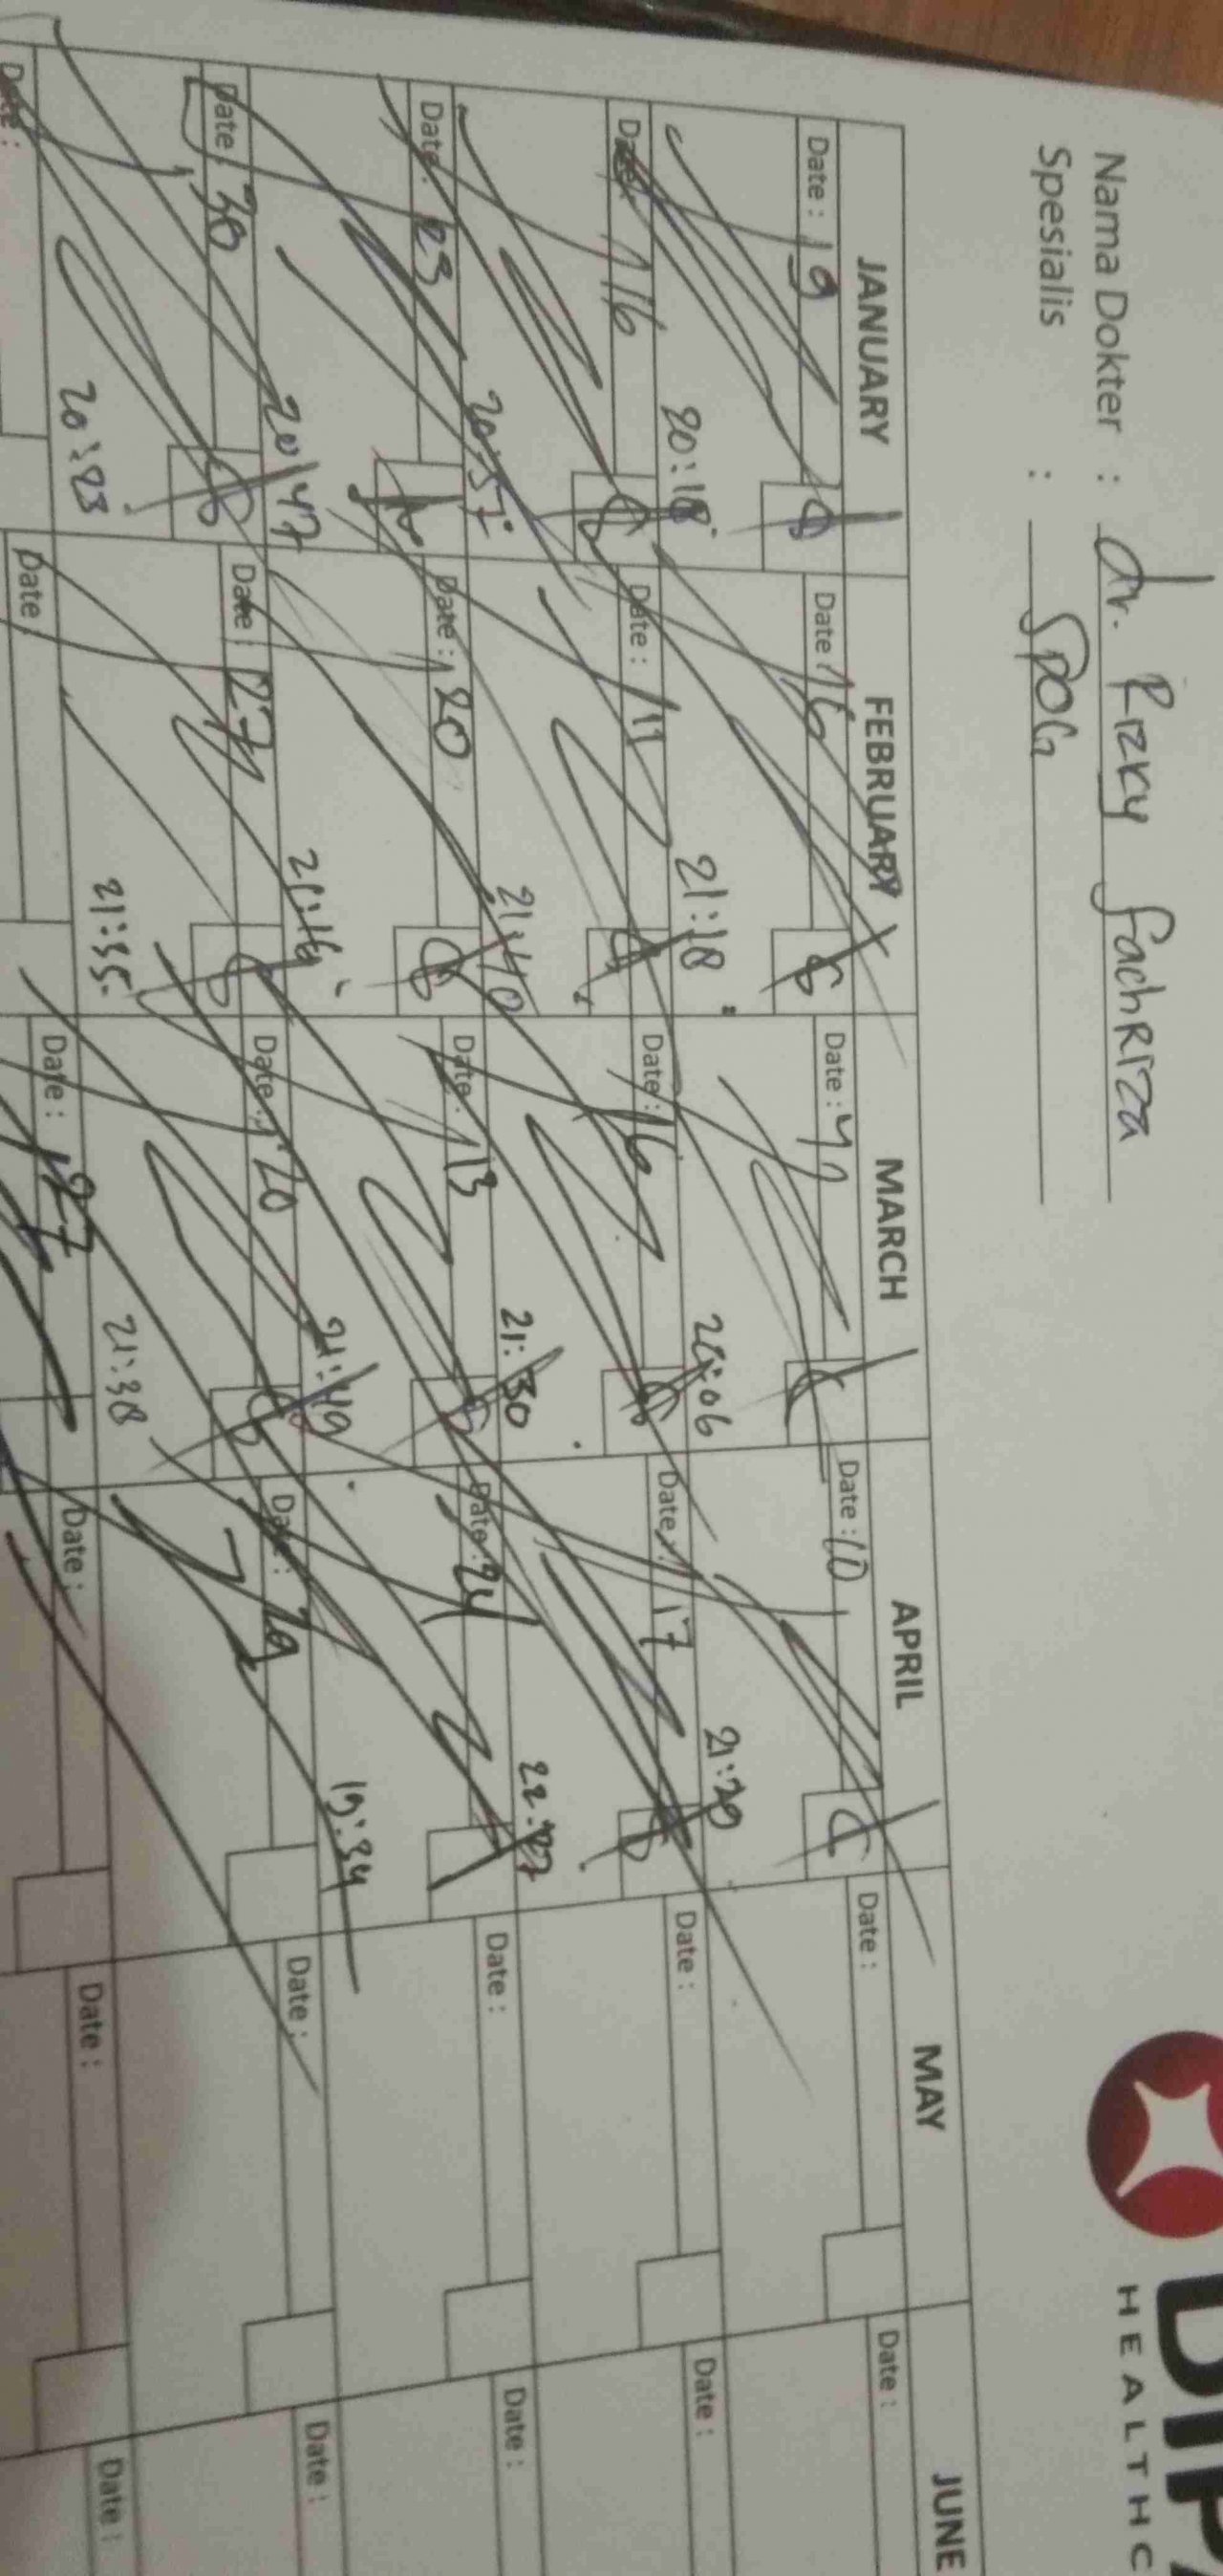 Nama Dokter : dr. Rizky fachRiza
Spesialis : SpOG
DIPA
HEALTHC
JANUARY FEBRUARY MARCH APRIL MAY JUNE
Date : 9 Date : 6 Date : 4 Date : 10 Date : Date :
20:18 21:18 20:06 21:20
Date : 16 Date : 11 Date : 6 Date : 17 Date : Date :
20:57 21:40 21:30
Date : 23 Date : 20 Date : 13 Date : 24 Date : Date :
20:47 21:16 21:49 19:34
Date : 30 Date : 27 Date : 20 Date : 29 Date : Date :
20:23 21:35 21:38
Date : Date : Date : 27 Date : Date : Date :